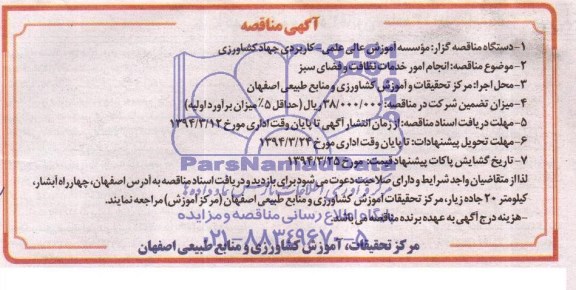 آگهی مناقصه
۱-دستگاه مناقصه گزار: مؤسسه آموزش عالی علمی-کاربردی جهاد کشاورزی
۲-موضوع مناقصه: انجام امور خدمات نظافت و فضای سبز
۳-محل اجرا: مرکز تحقیقات و آموزش کشاورزی و منابع طبیعی اصفهان
۴-میزان تضمین شرکت در مناقصه: ۳۸/۰۰۰/۰۰۰ ریال (حداقل ۵٪ میزان برآورد اولیه)
۵-مهلت دریافت اسناد مناقصه: از زمان انتشار آگهی تا پایان وقت اداری مورخ ۱۳۹۴/۳/۱۲
۶-مهلت تحویل پیشنهادات: تا پایان وقت اداری مورخ ۱۳۹۴/۳/۲۴
۷-تاریخ گشایش پاکات پیشنهاد قیمت: مورخ ۱۳۹۴/۳/۲۵
لذا از متقاضیان واجد شرایط و دارای صلاحیت دعوت می‌شود برای بازدید و دریافت اسناد مناقصه به آدرس اصفهان، چهارراه آبشار،
کیلومتر ۲۰ جاده زیار، مرکز تحقیقات آموزش کشاورزی و منابع طبیعی اصفهان (مرکز آموزش) مراجعه نمایند.
-هزینه درج آگهی به عهده برنده مناقصه می‌باشد.
مرکز تحقیقات، آموزش کشاورزی و منابع طبیعی اصفهان
ParsNamad
پایگاه اطلاع رسانی مناقصه و مزایده
۰۲۱-۸۸۳۴۹۶۷۰-۵